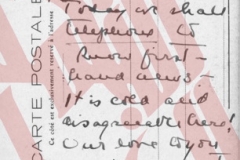 CARTE POSTALE
Ce côté est exclusivement réservé à l'adresse
Today we shall
telephone to
know first-
hand news -
It is cold and
disagreeable here!
Our love to you